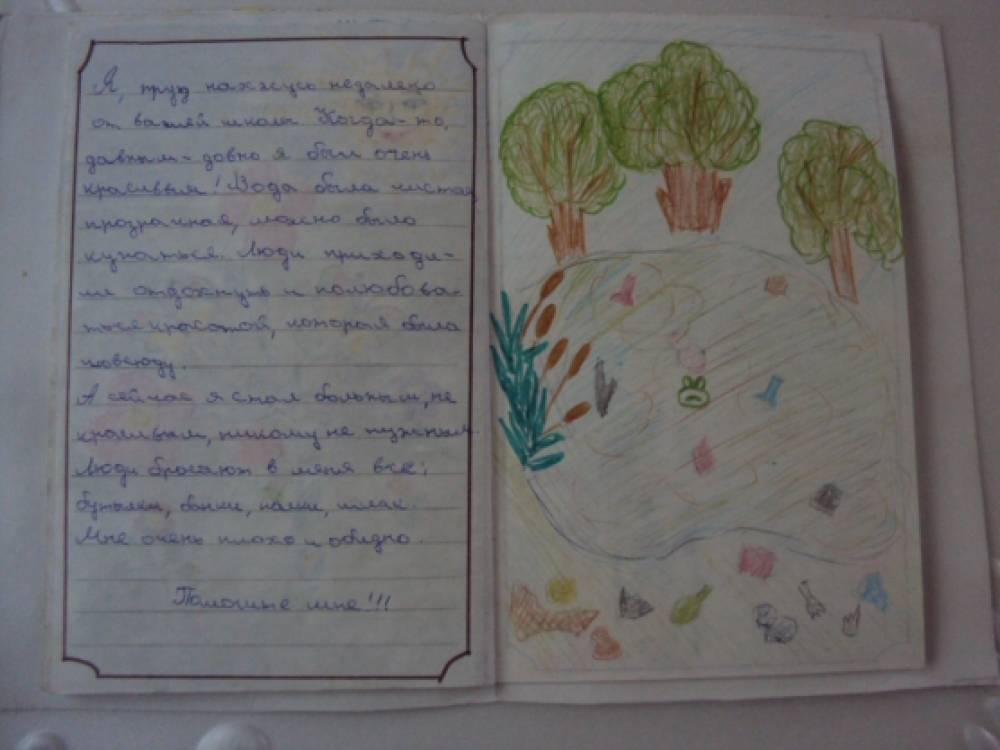 Я, пруд нахжусь недалеко
от вашей школы. Когда-то,
давным-довно я был очень
красивым! Вода была чистая
прозрачная, можно было
купаться. Люди приходи-
ли отдохнуть и полюбова-
ться красотой, которая была
повсюду.
А сейчас я стал больным, не
красивым, никому не нужным.
Люди бросают в меня все:
бутылки, банки, палки, шлак.
Мне очень плохо и обидно.
Помогите мне!!!